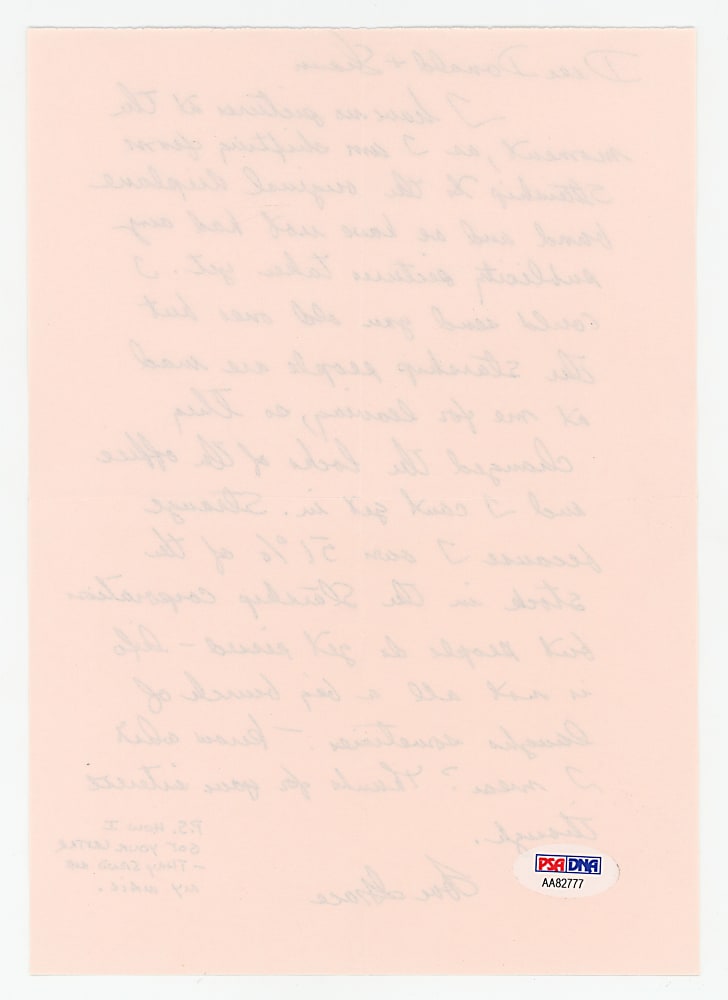 Dear Donald + Shawn
I have no pictures at the
moment, as I am shifting from
Starship to the original Airplane
band and we have not had any
publicity pictures taken yet. I
could send you old ones but
the Starship people are mad
at me for leaving, so they
changed the locks of the office
and I cant get in. Strange
because I own 51% of the
stock in the Starship corporation
but people do get pissed - life
is not all a big bunch of
laughs sometimes - know what
I mean? Thanks for your interest
though.
Love Grace
P.S. How I
got your letter
- They send me
my mail.
PSA DNA
AA82777